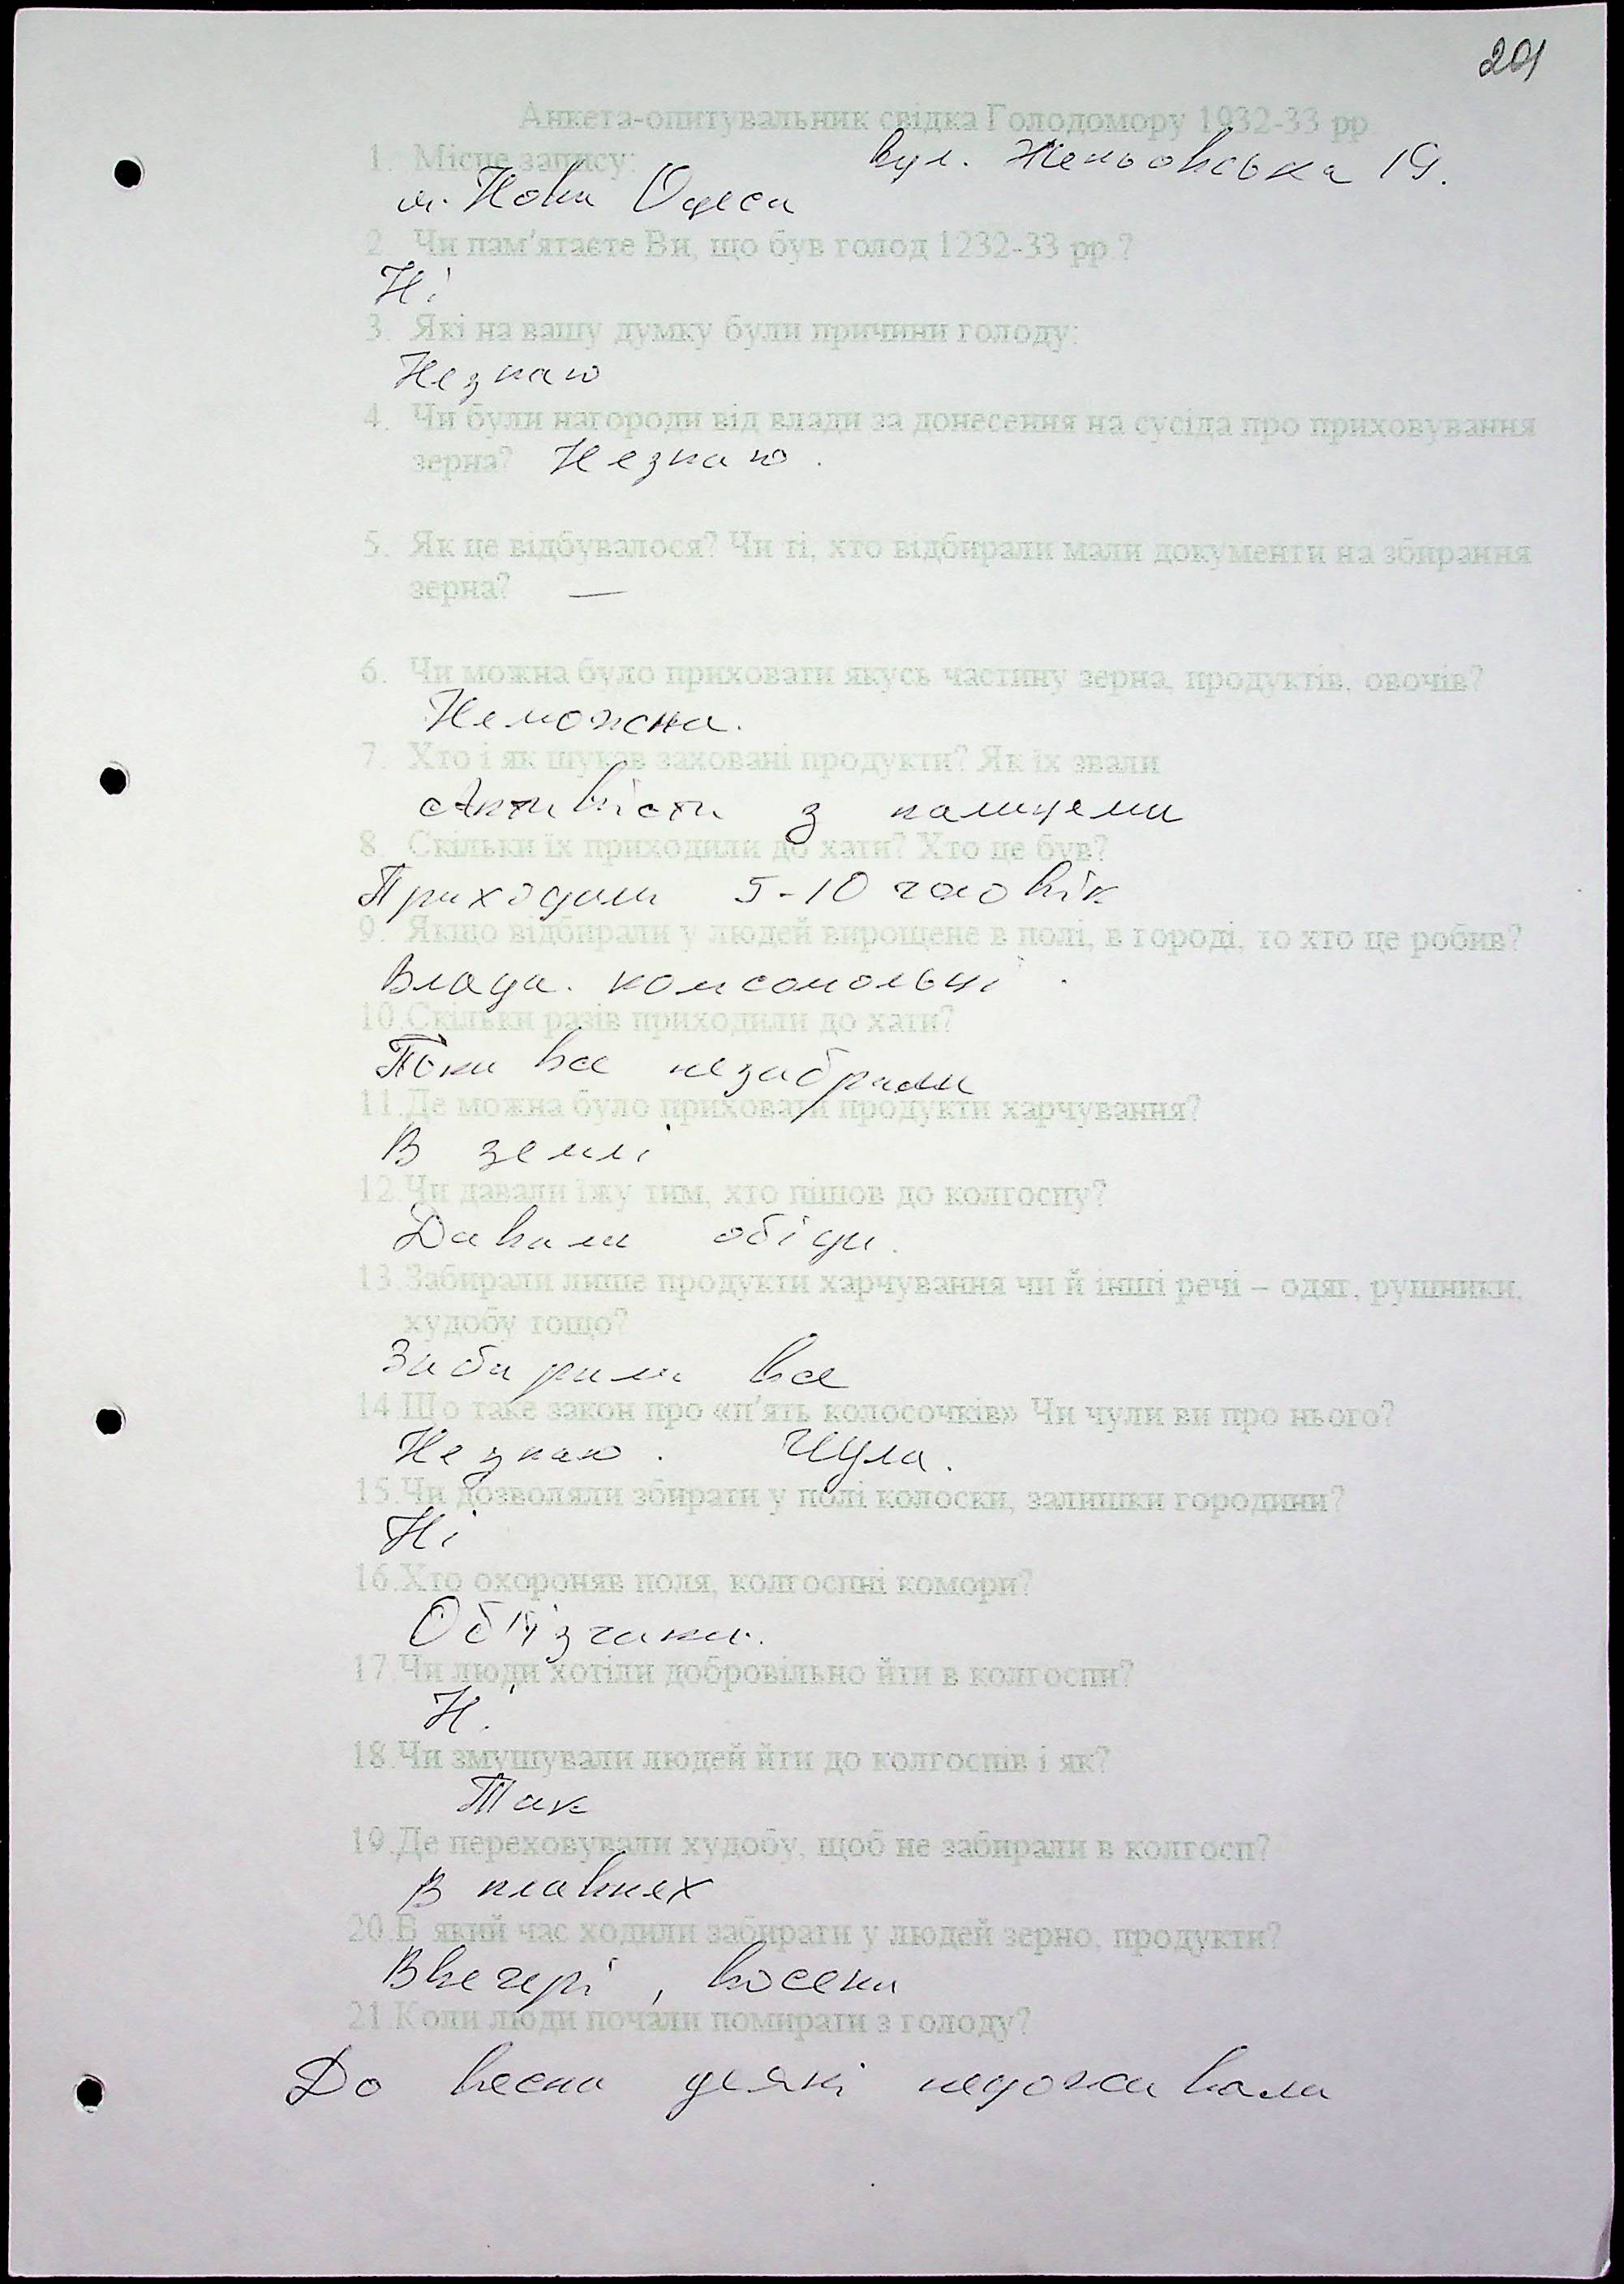 201
Анкета-опитувальник свідка Голодомору 1932-33 рр
1. Місце запису: вул. Женьовська 19.
м. Нова Одеса
2. Чи пам'ятаєте Ви, що був голод 1232-33 рр.?
Ні
3. Які на вашу думку були причини голоду:
Незнаю
4. Чи були нагороди від влади за донесення на сусіда про приховування
зерна? Незнаю.
5. Як це відбувалося? Чи ті, хто відбирали мали документи на збирання
зерна? —
6. Чи можна було приховати якусь частину зерна, продуктів, овочів?
Неможна.
7. Хто і як шукав заховані продукти? Як їх звали
Активісти з палицеми
8. Скільки їх приходили до хати? Хто це був?
Приходили 5-10 чоловік
9. Якщо відбирали у людей вирощене в полі, в городі, то хто це робив?
Влада. комсомольці.
10.Скільки разів приходили до хати?
Поки все незабрали
11.Де можна було приховати продукти харчування?
В землі
12.Чи давали їжу тим, хто пішов до колгоспу?
Давали обіди.
13.Забирали лише продукти харчування чи й інші речі – одяг, рушники,
худобу тощо?
Забирали все
14.Що таке закон про «п'ять колосочків» Чи чули ви про нього?
Незнаю. Чула.
15.Чи дозволяли збирати у полі колоски, залишки городини?
Ні
16.Хто охороняв поля, колгоспні комори?
Об'їзчики.
17.Чи люди хотіли добровільно йти в колгоспи?
Ні
18.Чи змушували людей йти до колгоспів і як?
Так
19.Де переховували худобу, щоб не забирали в колгосп?
В плавнях
20.В який час ходили забирати у людей зерно, продукти?
Ввечері, восени
21.Коли люди почали помирати з голоду?
До весни деякі недоживали